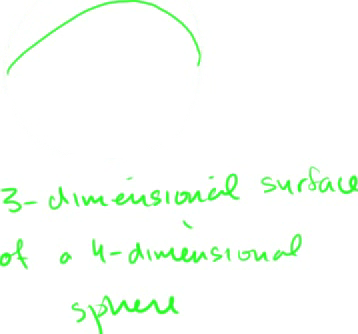 3-dimensional surface
of a 4-dimensional
sphere